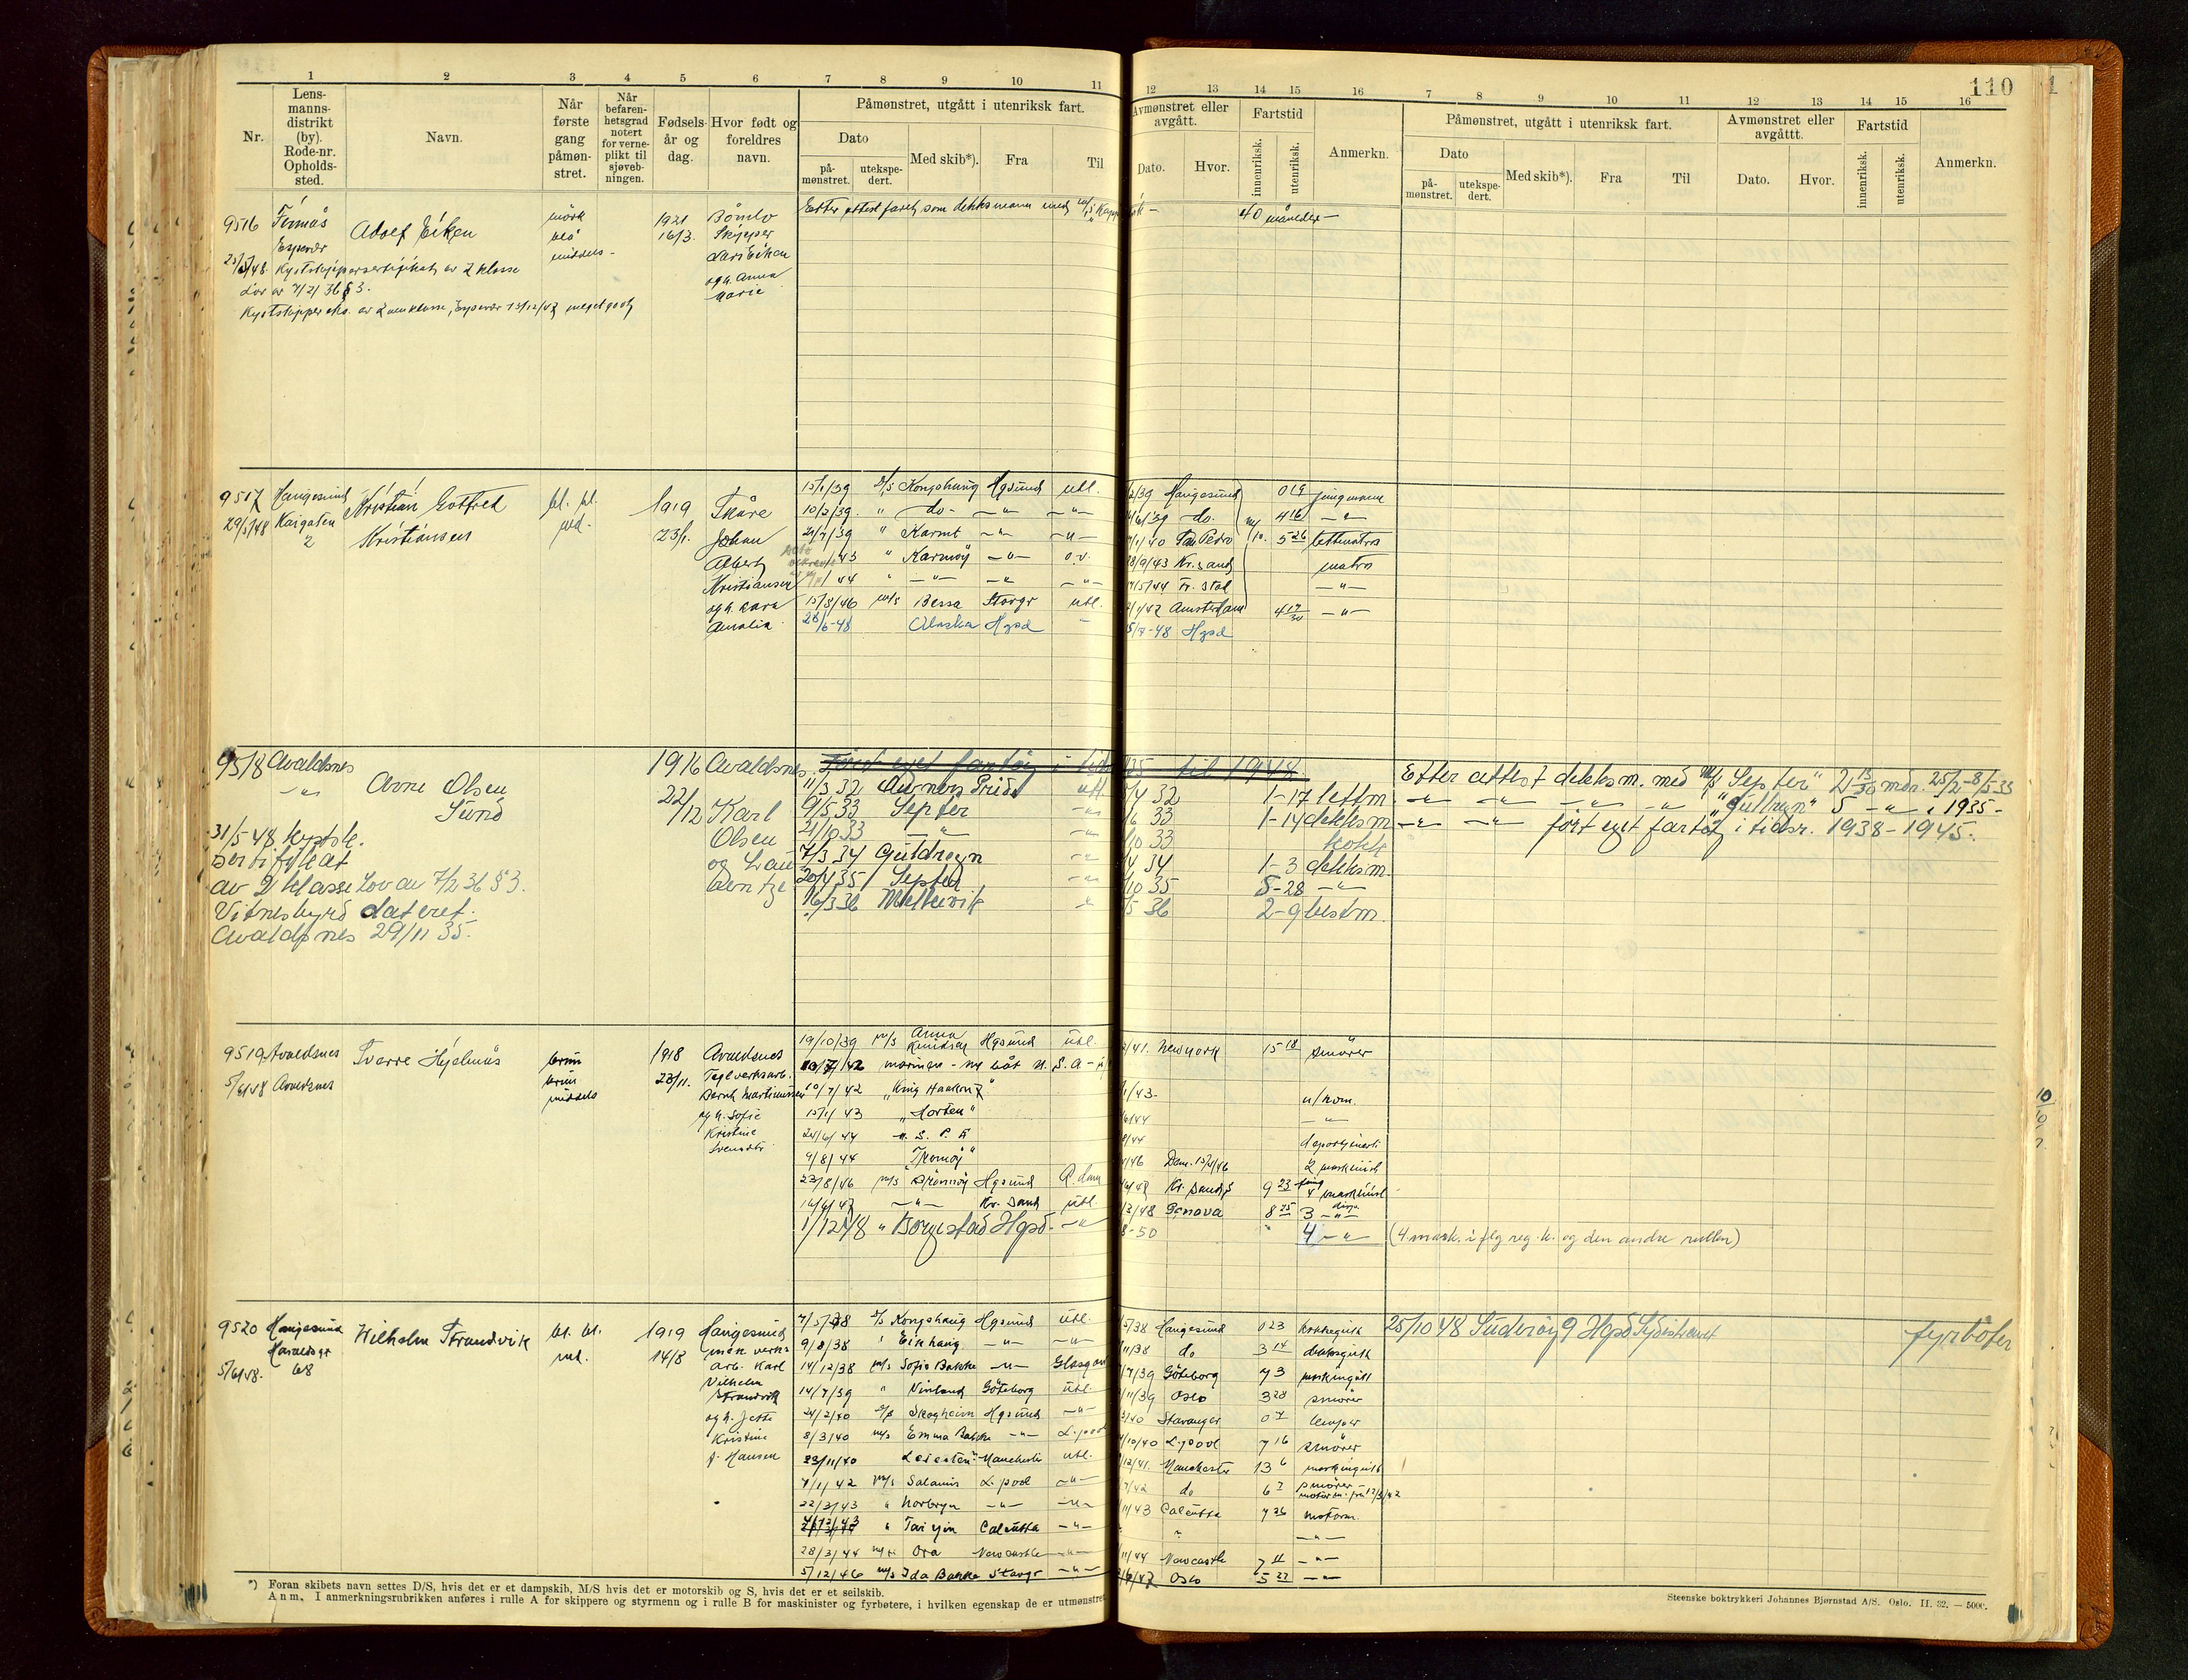 110
1 2 3 4 5 6 7 8 9 10 11 12 13 14 15 16 7 8 9 10 11 12 13 14 15 16
Nr.
Lens-
manns-
distrikt
(by).
Rode-nr.
Opholds-
sted.
Navn.
Når
første
gang
påmøn-
stret.
Når
befaren-
hetsgrad
notert
for verne-
plikt til
sjøveb-
ningen.
Fødsels-
år og
dag.
Hvor født og
foreldres
navn.
Påmønstret, utgått i utenriksk fart.
Dato
på-
mønstret.
utekspe-
dert.
Med skib*).
Fra
Til
Avmønstret eller
avgått.
Dato.
Hvor.
Fartstid
innenriksk.
utenriksk.
Anmerkn.
Påmønstret, utgått i utenriksk fart.
Dato
på-
mønstret.
utekspe-
dert.
Med skib*).
Fra
Til
Avmønstret eller
avgåttt.
Dato.
Hvor.
Fartstid
innenriksk.
utenriksk.
Anmerkn.
9516 Finnås Adolf Eiken mörk 1921 Bömlo
Espevær blå 16/3. Skipper
middels Lars Eiken
og h. Anna
Marie
Efter attest faret som dekksmann med
40 måneder
Kystskippersertifikat av 2 klasse
Lov av 7/2/36 § 3.
9517 Haugesund Kristian Gotfred bl. bl. 1919 Skåre
29/5/48 Kaigaten Kristiansen md. 23/1. Johan
2
Albert
Kristiansen
og h. Lara
Amalia
15/1/39 D/S Kongshaug Hgsund utl. 2/39 Haugesund 0 19 jungmann
10/2/39 " do- -"- -"- 4/6/39 do. 4 16 -"-
21/7/39 " Karmt -"- -"- /1/40 San Pedro 5 26 lettmatros
43 " Karmöy -"- o.v. 28/9/43 Kr.sand matros
44 " -"- -"- -"- /5/44 Fr. stad -"-
15/8/46 M/S Bessa Stavgr utl. /1/47 Amsterdam 4 17/30 -"-
28/6-48 Alaska Hgsd - 5/7-48 Hgsd
9518 Avaldsnes Arne Olsen 1916 Avaldsnes
-"- Sund 22/12 Karl
Olsen
31/5 48 Kystsk.
sertifikat
av 2 klasse Lov av 7/2 36 § 3.
Vitnesbyrd dateret
Avaldsnes 29/11 35.
Fört eget fartöy i til 1948
11/3 32 Autners Pride utl /4 32 1-17 lettm.
9/5 33 Septer -"- /6 33 1-14 dekksm
21/10 33 -"- -"- /10 33 kokk
7/3 34 Guldregn -"- /4 34 1-3 dekksm.
20/4 35 Septer -"- /10 35 5-28 -"-
16/3 36 Mellervik -"- /5 36 2-9 bestm.
Etter attest dekksm. med M/S "Septer" 2 13/30 mdr. 25/2-8/5-33
-"- -"- -"- -"- "Gullregn" 5 -"- i 1935-
-"- -"- fört eget fartöy i tidsr. 1938-1945.
9519 Avaldsnes Sverre Hjelmås brun 1918 Avaldsnes
5/6/48 Avaldsnes brun 23/11. Teglverksarb.
middels Bernt Martinussen
og h. Sofie
Kristine
Svendsdtr
19/10/39 M/S Anna Knudsen Hgsund utl. /41. New York 15 18 smörer
10/7/42 marinen - ny båt U.S.A -
10/7/42 "King Haakon 7" /1/43- u/kom.
15/1/43 "Horten" /6/44 -"-
24/6/44 U. S. P. A /44
9/8/44 "Tromöy" /46 Dem. 15/4/46 2 maskinist
23/8/46 M/S Brönnöy Hgsund A.dam /6/47 Kr. sand S 9 23 4 maskinist
16/6/47 -"- Kr. sand utl. /3/48 Genova 8 25 3 -"-
1/12 48 " Borgestad Hgsd. -"- 8-50 4 -"- (4. mask. iflg reg. k. og den andre rullen)
9520 Haugesund Wilhelm Strandvik bl. bl. 1919 Haugesund
Haraldsgt md. 14/8 mek verks
5/6/48. 68 arb. Karl
Vilhelm
Strandvik
og h. Jette
Kristine
f. Hansen
7/5/38 D/S Kongshaug Hgsund utl. /5/38 Haugesund 0 23 kokksgutt
9/8/38 " Eikhaug -"- -"- /11/38 do 3 14 dekksgutt
14/12/38 M/S Sofie Bakke -"- Glasgow /7/39 Göteborg 7 3 maskingutt
14/7/39 " Vinland Göteborg utl. /11/39 Oslo 3 28 smörer
24/2/40 D/S Skogheim Hgsund -"- 3/40 Stavanger 0 7 lemper
8/3/40 M/S Emma Bakke -"- L.pool /10/40 L.pool 7 16 smörer
23/11/40 Leiesten Manchester utl. /12/41. Manchester 13 6 maskingutt
7/1/42 M/S Salamis L.pool -"- /7/42 do 6 7 smörer
motorm. fra 17/3/42
22/3/43 " Norbryn -"- -"- /11/43 Calcutta 7 26 motorm.
4/12/43 " Tai Yin Calcutta -"- -"-
28/3/44 M/T Ora Newcastle -"- /11/44 Newcastle 7 11 -"-
5/12/46 M/S Ida Bakke Stavgr -"- /6/47 Oslo 5 27 -"-
25/10 48 Suderöy 9 Hgsd Sydishavet fyrböter
*) Foran skibets navn settes D/S, hvis det er et dampskib, M/S hvis det er motorskib og S, hvis det er et seilskib.
Anm. I anmerkningsrubrikken anføres i rulle A for skippere og styrmenn og i rulle B for maskinister og fyrbøtere, i hvilken egenskap de er utmønstret
Steenske boktrykkeri Johannes Bjørnstad A/S. Oslo. II. 32. — 5000.